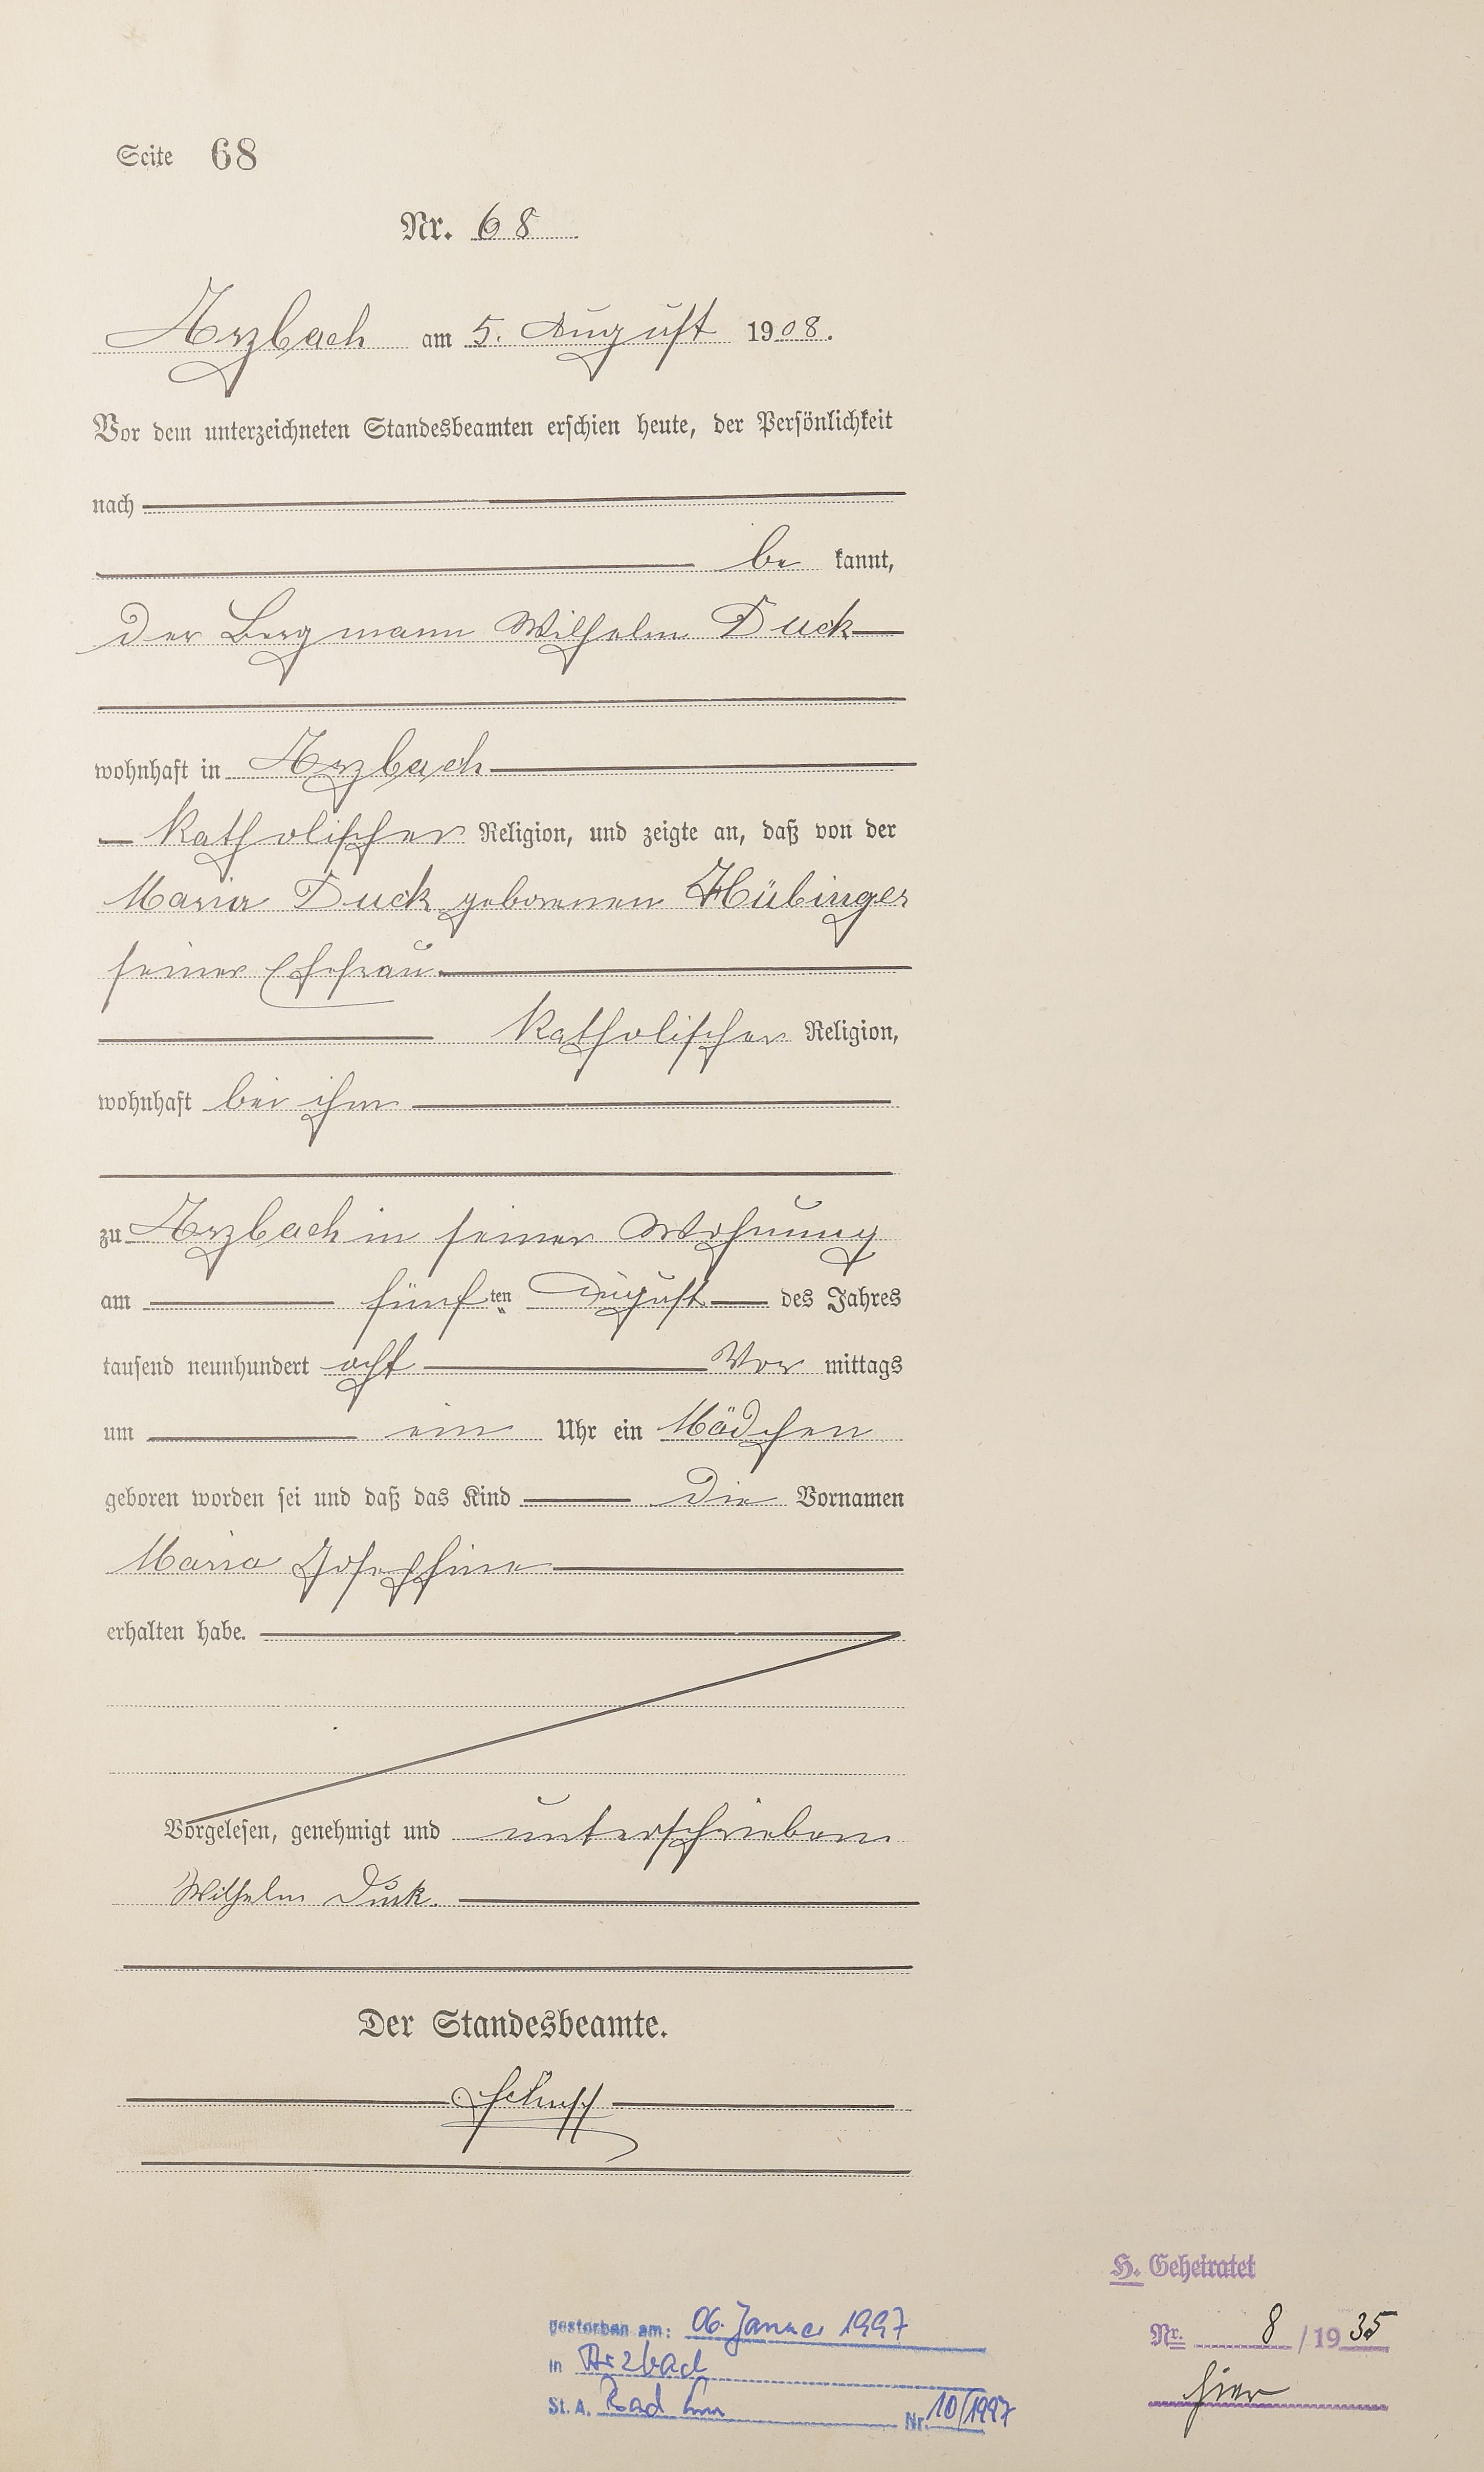 Seite 68
Nr. 68
Arzbach am 5. August 1908.
Vor dem unterzeichneten Standesbeamten erschien heute, der Persönlichkeit
nach
be kannt,
der Bergmann Wilhelm Duck
wohnhaft in Arzbach
katholischer Religion, und zeigte an, daß von der
Maria Duck geborenen Hübinger
seiner Ehefrau
katholischer Religion,
wohnhaft bei ihm
zu Arzbach in seiner Wohnung
am fünf ten August des Jahres
tausend neunhundert acht Vor mittags
um ein Uhr ein Mädchen
geboren worden sei und daß das Kind die Vornamen
Maria Josephine
erhalten habe.
Vorgelesen, genehmigt und unterschrieben
Wilhelm Duck.
Der Standesbeamte.
Schupp
H. Geheiratet
Nr. 8 / 1935
hier
gestorben am: 06. Januar 1997
in Arzbach
St. A. Bad Ems Nr. 10/1997